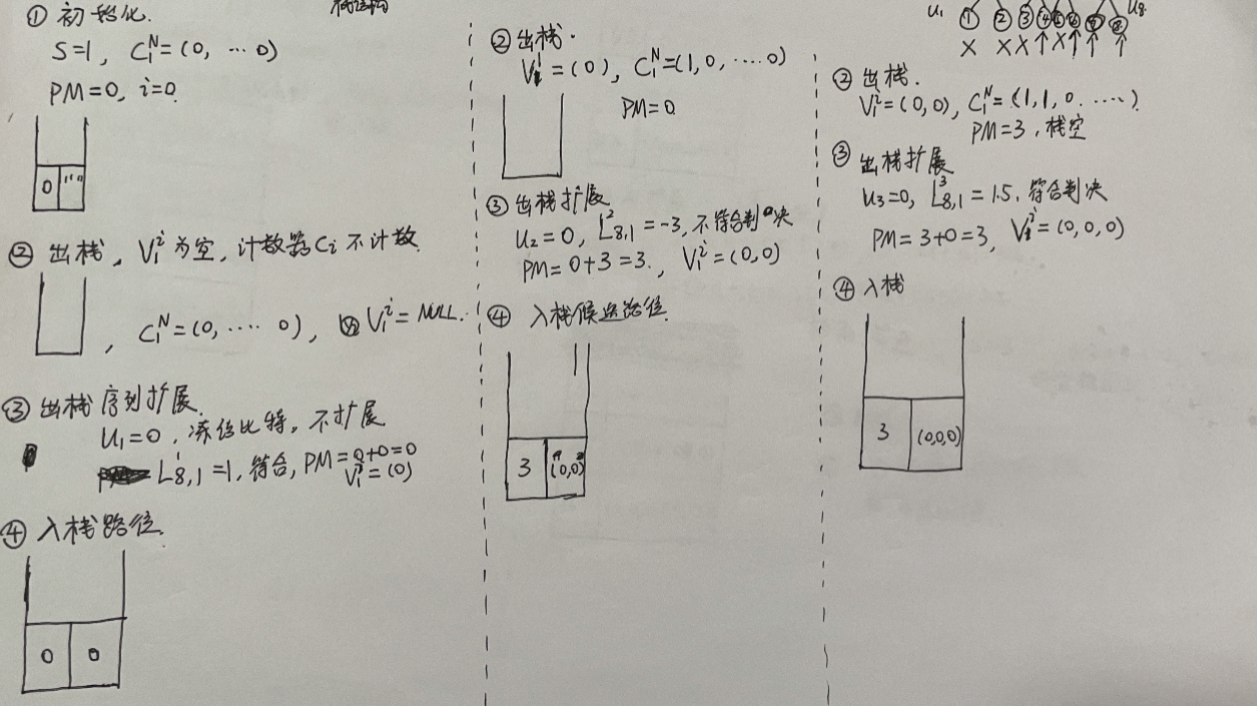 ① 初始化.
S=1, C₁ᴺ=(0, …0)
PM=0, i=0.
0 ""
② 出栈, V₁ⁱ 为空, 计数器Cᵢ不计数.
, C₁ᴺ=(0, …… 0), V₁ⁱ= NULL.
③ 出栈序列扩展.
U₁=0, 冻结比特, 不扩展
L¹₈,₁=1, 符合, PM=0+0=0
V₁ⁱ=(0)
④ 入栈路径.
0 0
栈结构
② 出栈.
V₁ⁱ=(0), C₁ᴺ=(1,0, ……0)
PM=0
③ 出栈扩展
U₂=0, L²₈,₁=-3, 不符合判决
PM=0+3=3., V₁ⁱ=(0,0)
④ 入栈候选路径.
3 (0,0)
U₁ ① ② ③ ④ ⑤ ⑥ ⑦ ⑧ U₈
× × × ↑ × ↑ ↑ ↑
② 出栈.
V₁ⁱ=(0,0), C₁ᴺ=(1,1,0……)
PM=3, 栈空
③ 出栈扩展
U₃=0, L³₈,₁=1.5, 符合判决
PM=3+0=3, V₁ⁱ=(0,0,0)
④ 入栈
3 (0,0,0)